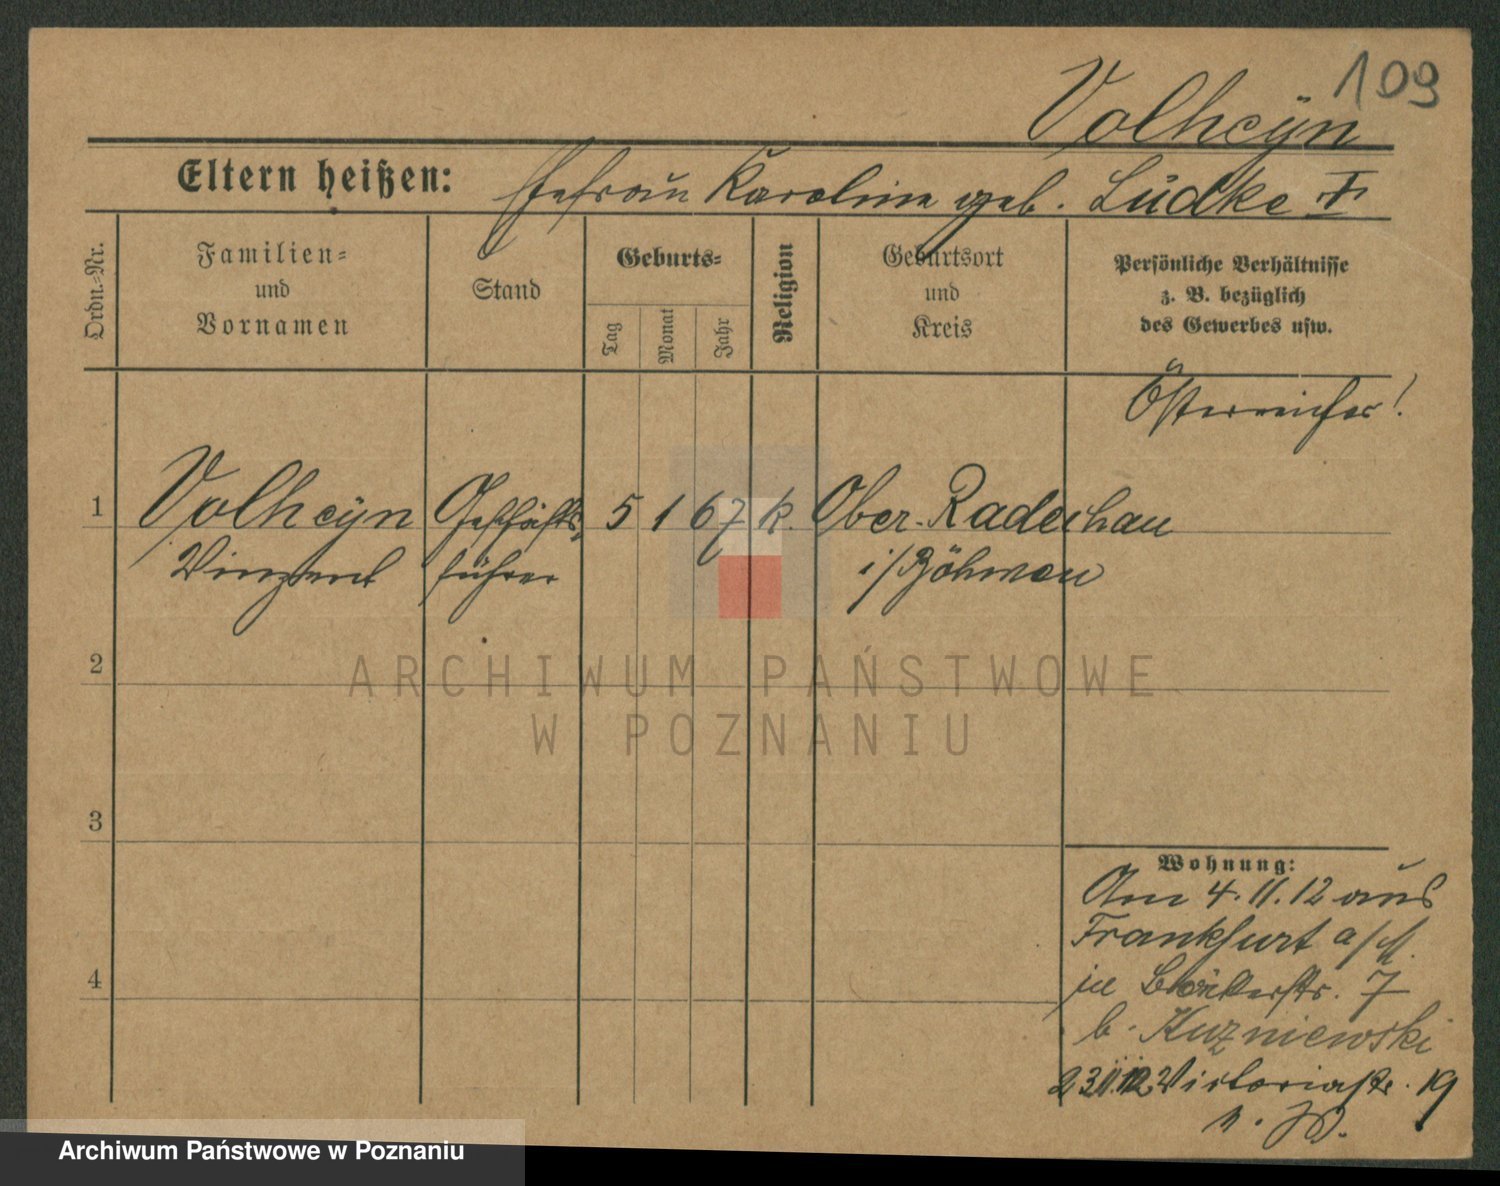 109
Volhcÿn
Eltern heißen: Ehefrau Karoline geb. Lüdke †
Ordn.-Nr.
Familien-
und
Vornamen
Stand
Geburts-
Tag
Monat
Jahr
Religion
Geburtsort
und
Kreis
Persönliche Verhältnisse
z. B. bezüglich
des Gewerbes usw.
Österreicher!
1 Volhcÿn Geschäfts- 5 1 67 k. Ober-Radechau
Vinzent führer i/Böhmen
2
ARCHIWUM PAŃSTWOWE
W POZNANIU
3
Wohnung:
Am 4.11.12 aus
Frankfurt a/M.
in Bäckerstr. 7
b. Kuzniewski
Victoriastr. 19
4
Archiwum Państwowe w Poznaniu